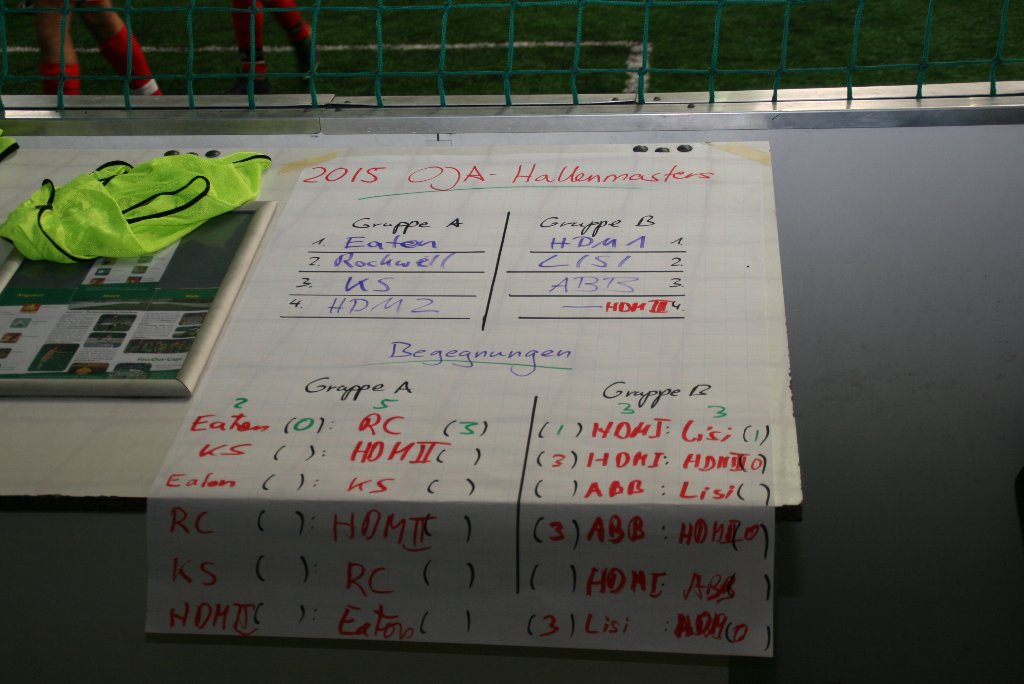 2015 OJA-Hallenmasters
Gruppe A
1. Eaton
2. Rockwell
3. KS
4. HDM2
Gruppe B
HDM1 1.
LISI 2.
ABB 3.
— HDM III 4.
Begegnungen
Gruppe A
2 5
Eaton (0): RC (3)
KS ( ): HDM II ( )
Eaton ( ): KS ( )
RC ( ): HDM II ( )
KS ( ): RC ( )
HDM II ( ): Eaton ( )
Gruppe B
3 3
(1) HDM I: Lisi (1)
(3) HDM I: HDM III 0)
( ) ABB : Lisi ( )
(3) ABB : HDM III (0)
( ) HDM I: ABB
(3) Lisi : (0)